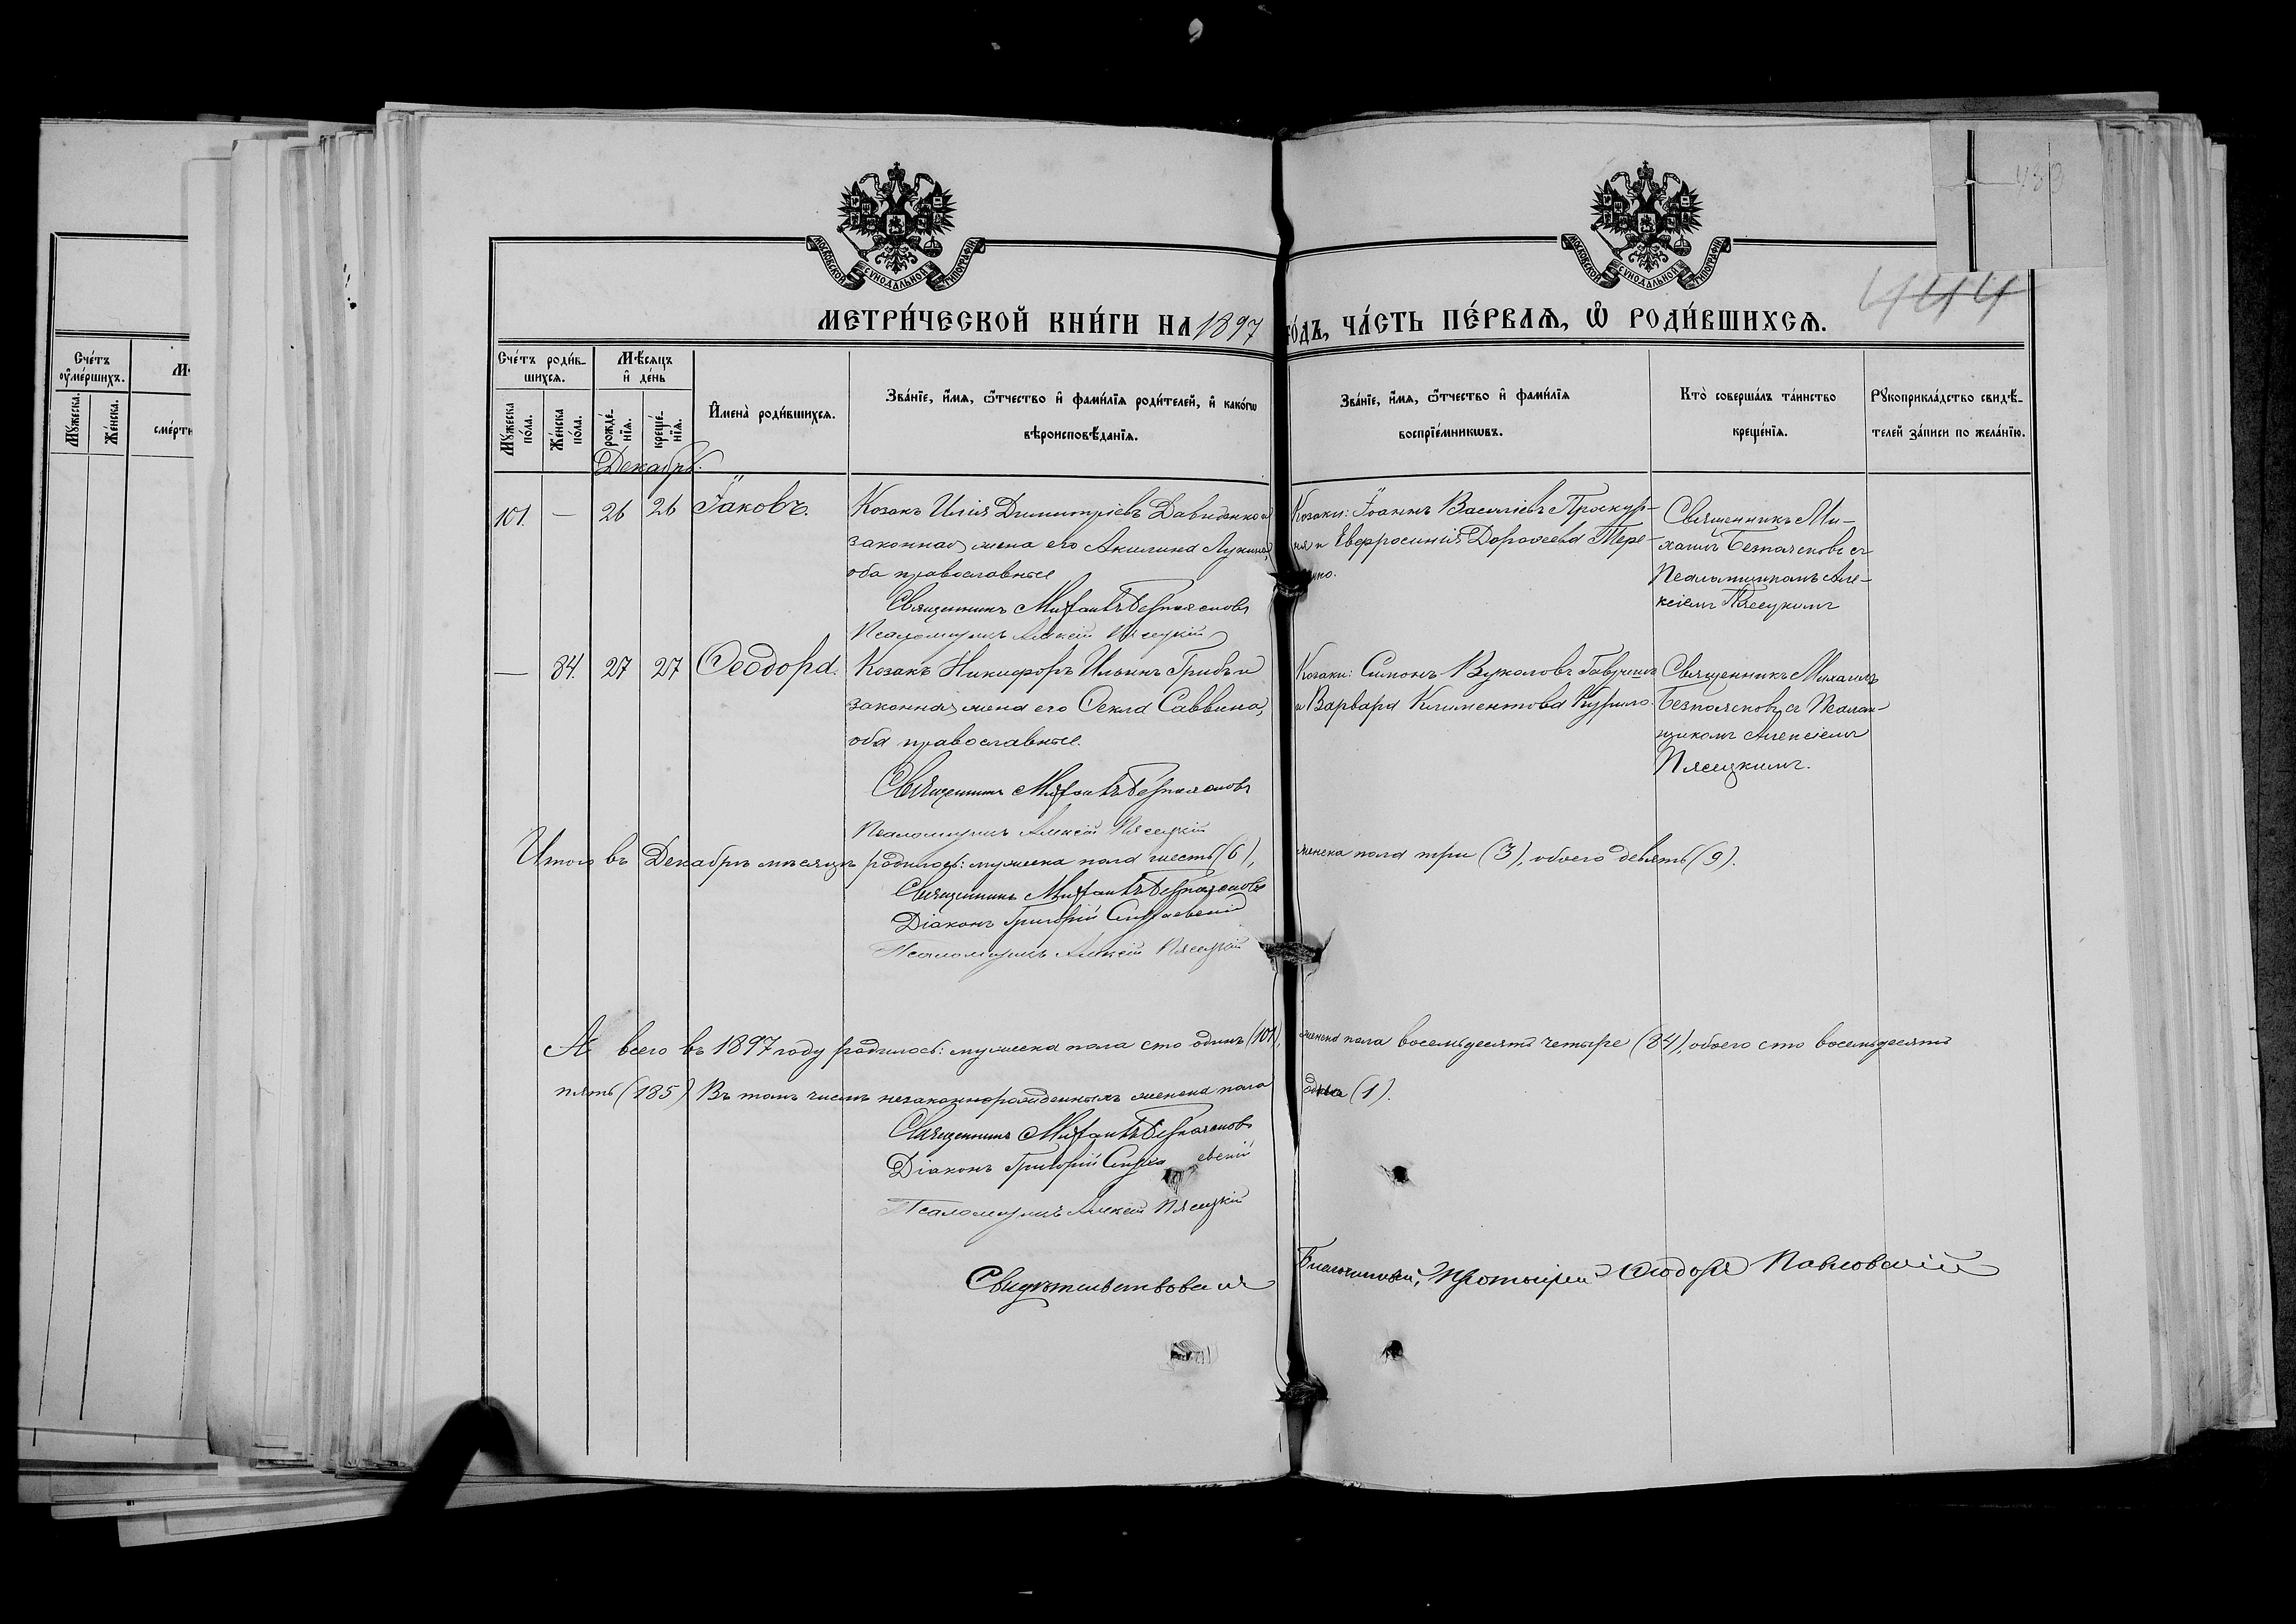 Счéтъ оу҆мéршихъ.
Мꙋ́жеска.
Жéнска.
смéрти
МОСКОВСКОЙ СѴНОДАЛЬНОЙ ТИПОГРАФІИ
МОСКОВСКОЙ СѴНОДАЛЬНОЙ ТИПОГРАФІИ
444
МЕТРИ́ЧЕСКОЙ КНИ́ГИ НА 1897 ГО́ДЪ, ЧА́СТЬ ПЕ́РВАѦ, Ѽ РОДИ́ВШИХСѦ.
Счéтъ роди́вшихсѧ.
Мꙋ́жеска по́ла.
Жéнска по́ла.
Мѣ́сѧцъ и҆ дéнь
рождéнїѧ.
крещéнїѧ.
И҆менà роди́вшихсѧ.
Звáнїе, и҆́мѧ, ѻ҆́тчество и҆ фами́лїѧ роди́телей, и҆ како́гѡ
вѣроисповѣ́данїѧ.
Звáнїе, и҆́мѧ, ѻ҆́тчество и҆ фами́лїѧ
воспрїéмникѡвъ.
Кто̀ совершáлъ тáинство
крещéнїѧ.
Рꙋкоприклáдство свидѣ́-
телей зáписи по желáнїю.
Декабрь.
101 — 26 26 Іаковъ.
Козакъ Илія Димитріевъ Давиденко и
законная жена его Акилина Лукина,
оба православные
Священникъ Михаилъ Безпаясковъ
Псаломщикъ Алексій Пясецкій
Козаки: Іоаннъ Василіевъ Проскур-
ня и Евфросинія Дороѳеева Тере-
Священникъ Ми-
хаилъ Безпаясковъ съ
Псаломщикомъ Але-
ксіемъ Пясецкимъ
— 84. 27 27 Ѳеодора.
Козакъ Никифоръ Ильинъ Грибъ и
законная жена его Ѳекла Саввина,
оба православные.
Священникъ Михаилъ Безпаясковъ
Псаломщикъ Алексій Пясецкій
Козаки: Симонъ Вуколовъ
и Варвара Климентова Курило.
Священникъ Михаилъ
Безпаясковъ съ Псалом-
щикомъ Алексіемъ
Пясецкимъ.
Итого въ Декабрѣ мѣсяцѣ родилось: мужеска пола шесть (6), женска пола три (3), обоего девять (9).
Священникъ Михаилъ Безпаясковъ
Діаконъ Григорій
Псаломщикъ Алексій Пясецкій
А всего въ 1897 году родилось: мужеска пола сто одинъ (101), женска пола восемьдесятъ четыре (84), обоего сто восемьдесятъ
пять (185) Въ томъ числѣ незаконнорожденныхъ женска пола одна (1).
Священникъ Михаилъ Безпаясковъ
Діаконъ Григорій
Псаломщикъ Алексій Пясецкій
Свидѣтельствовалъ Благочинный, Протоіерей Ѳеодоръ Павловскій